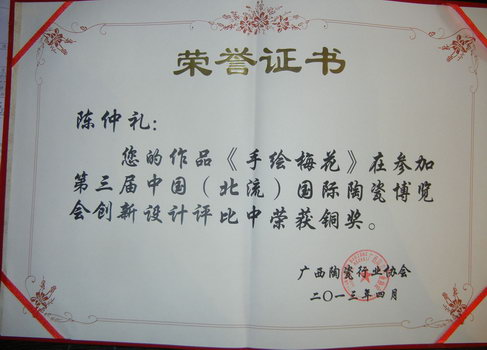 荣誉证书
陈仲礼：
您的作品《手绘梅花》在参加
第三届中国（北流）国际陶瓷博览
会创新设计评比中荣获铜奖。
广西陶瓷行业协会
二〇一三年四月